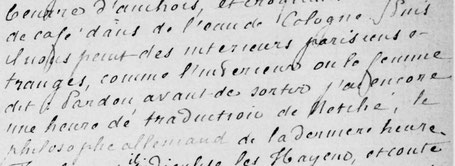 beurre d'anchois, et
de café dans de l'eau de Cologne. Puis
il nous peint des interieurs parisiens e-
tranges, comme l'interieur ou la femme
dit : Pardon, avant de sortir j'ai encore
une heure de traduction de Netché, le
philosophe allemand de la dernière heure.
les Hayem, et conte